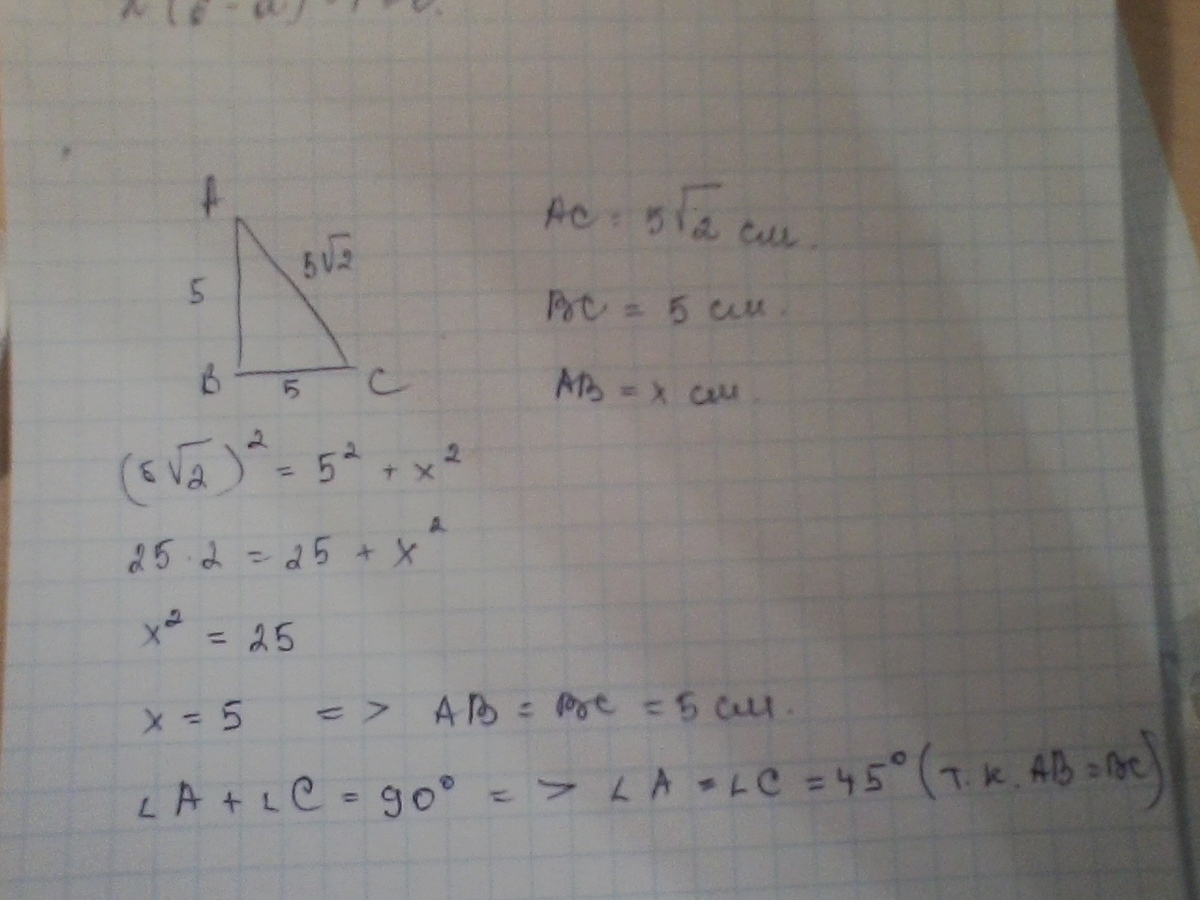 A
5√2
5
B
5
C
AC = 5√2 см.
BC = 5 см.
AB = x см.
(5√2)² = 5² + x²
25 · 2 = 25 + x²
x² = 25
x = 5 => AB = BC = 5 см.
∠A + ∠C = 90° => ∠A = ∠C = 45° (т.к. AB = BC)